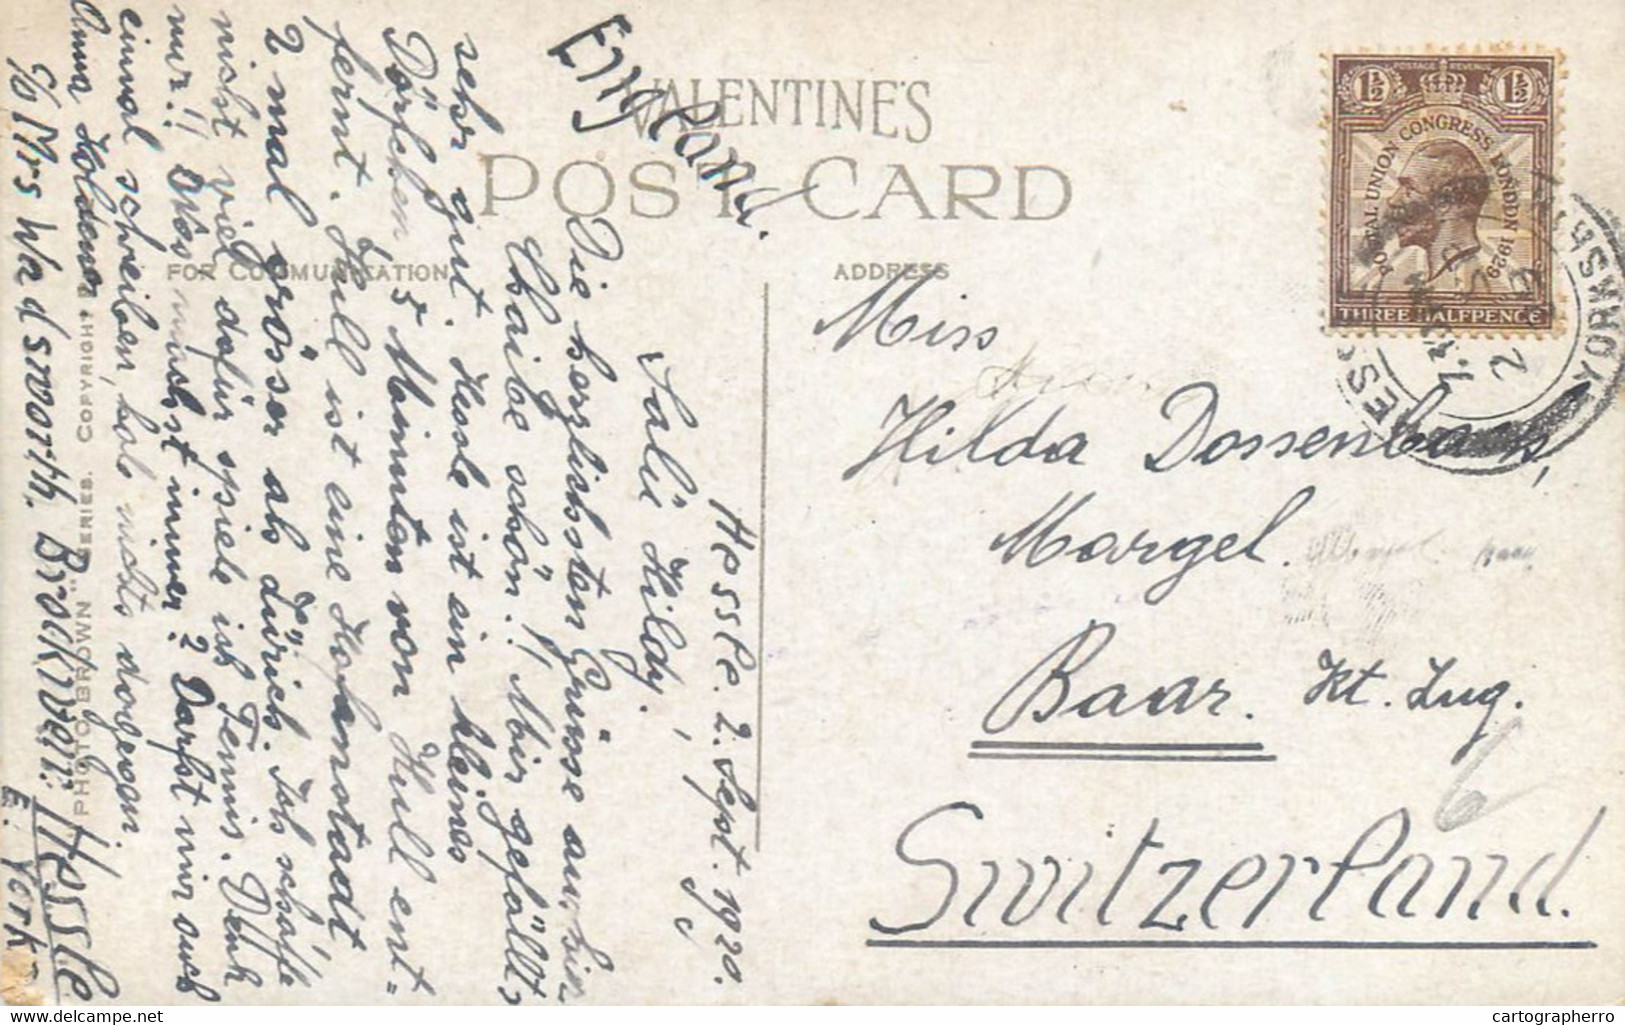 England.
VALENTINE'S
POST CARD
FOR COMMUNICATION
ADDRESS
Hessle, 2. Sept. 1929.
Salü Hildy!
Die herzlichsten Grüsse aus hier
Chaibe schön!! Mir gefällts
sehr gut. Hessle ist ein kleines
Dörfchen 5 Minuten von Hull ent=
fernt. Hull ist eine Hafenstadt
2 mal grösser als Zürich. Ich schaffe
nicht viel dafür spiele ich Tennis. Denk
nur!! Was machst immer? Darfst mir auch
einmal schreiben, hab nichts dagegen
Anna Holdener
c/o Mrs Wadsworth. Brockivelt. Hessle
E. York
PHOTO BROWN SERIES. COPYRIGHT
POSTAGE REVENUE
1½ 1½
POSTAL UNION CONGRESS LONDON 1929
THREE HALFPENCE
YORKSH
Miss
Hilda Dossenbach,
Margel.
Baar. Kt. Zug.
Switzerland.
6
cartographerro